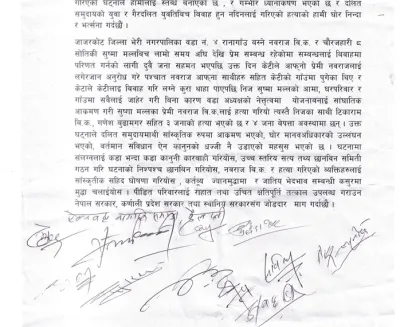 गरिएको घटनाले हामीलाई स्तब्ध बनाएको छ , र गम्भीर ध्यानाकर्षण भएको छ र दलित
समुदायको युवा र गैरदलित युवतिबिच विवाह हुन नदिनलाई गरिएको हत्याको हामी घोर निन्दा
र भर्त्सना गर्दछौं ।
जाजरकोट जिल्ला भेरी नगरपालिका वडा नं ४ रानागाउँ बस्ने नवराज वि.क र चौरजहारी ८
सोतिकी सुष्मा मल्लबिच लामो समय अघि देखि प्रेम सम्बन्ध रहेकोमा सम्बन्धलाई विवाहमा
परिणत गर्नको लागी दुवै जना सहमत भएपछि , उक्त दिन केटीले आफ्नो प्रेमी नवराजलाई
लगेरजान अनुरोध गरे पश्चात नवराज आफ्ना साथीहरु सहित केटीको गाउँमा पुगेका थिए र
केटाले केटीलाई विवाह गरि लग्ने कुरा थाहा पाएपछि निज सुष्मा मल्लको आमा, घरपरिवार र
गाउँमा सबैलाई जाहेर गरी विना कारण वडा अध्यक्षको नेतृत्वमा योजनानाई सांघातिक
आक्रमण गरी सुष्मा मल्लका प्रेमी नवराज वि.क.लाई हत्या गरियो त्यस्तै निजका साथी टिकाराम
वि.क., गणेश बुढामगर सहित ३ जनाको हत्या भएको छ र ४ जना बेपत्ता अवस्थामा छन् । उक्त
घटनाले दलित समुदायमाथी सांस्कृतिक रुपमा आक्रमण भएको, घोर मानवअधिकारको उल्लंघन
भएको, वर्तमान संविधान ऐन कानुनको धज्जी नै उडाएको महसुस भएको छ । घटनामा
संलग्नलाई कडा भन्दा कडा कानुनी कारवाही गरियोस, उच्च स्तरिय सत्य तथ्य छानबिन समिती
गठन गरि घटनाको निश्पश्च छानबिन गरियोस, नवराज वि.क र हत्या गरिएको व्यक्तिहरुलाई
सांस्कृतीक सहिद घोषणा गरियोस , कर्तव्य ज्यानमुद्धामा र जातिय भेदभाव सम्बन्धी कसुरमा
मुद्धा चलाईयोस । पीडित परिवारलाई राहात तथा उचित क्षतिपुर्ति तत्काल उपलब्ध गराउन
नेपाल सरकार, कर्णाली प्रदेश सरकार तथा स्थानिय सरकारसंग जोडदार माग गर्दछौं ।